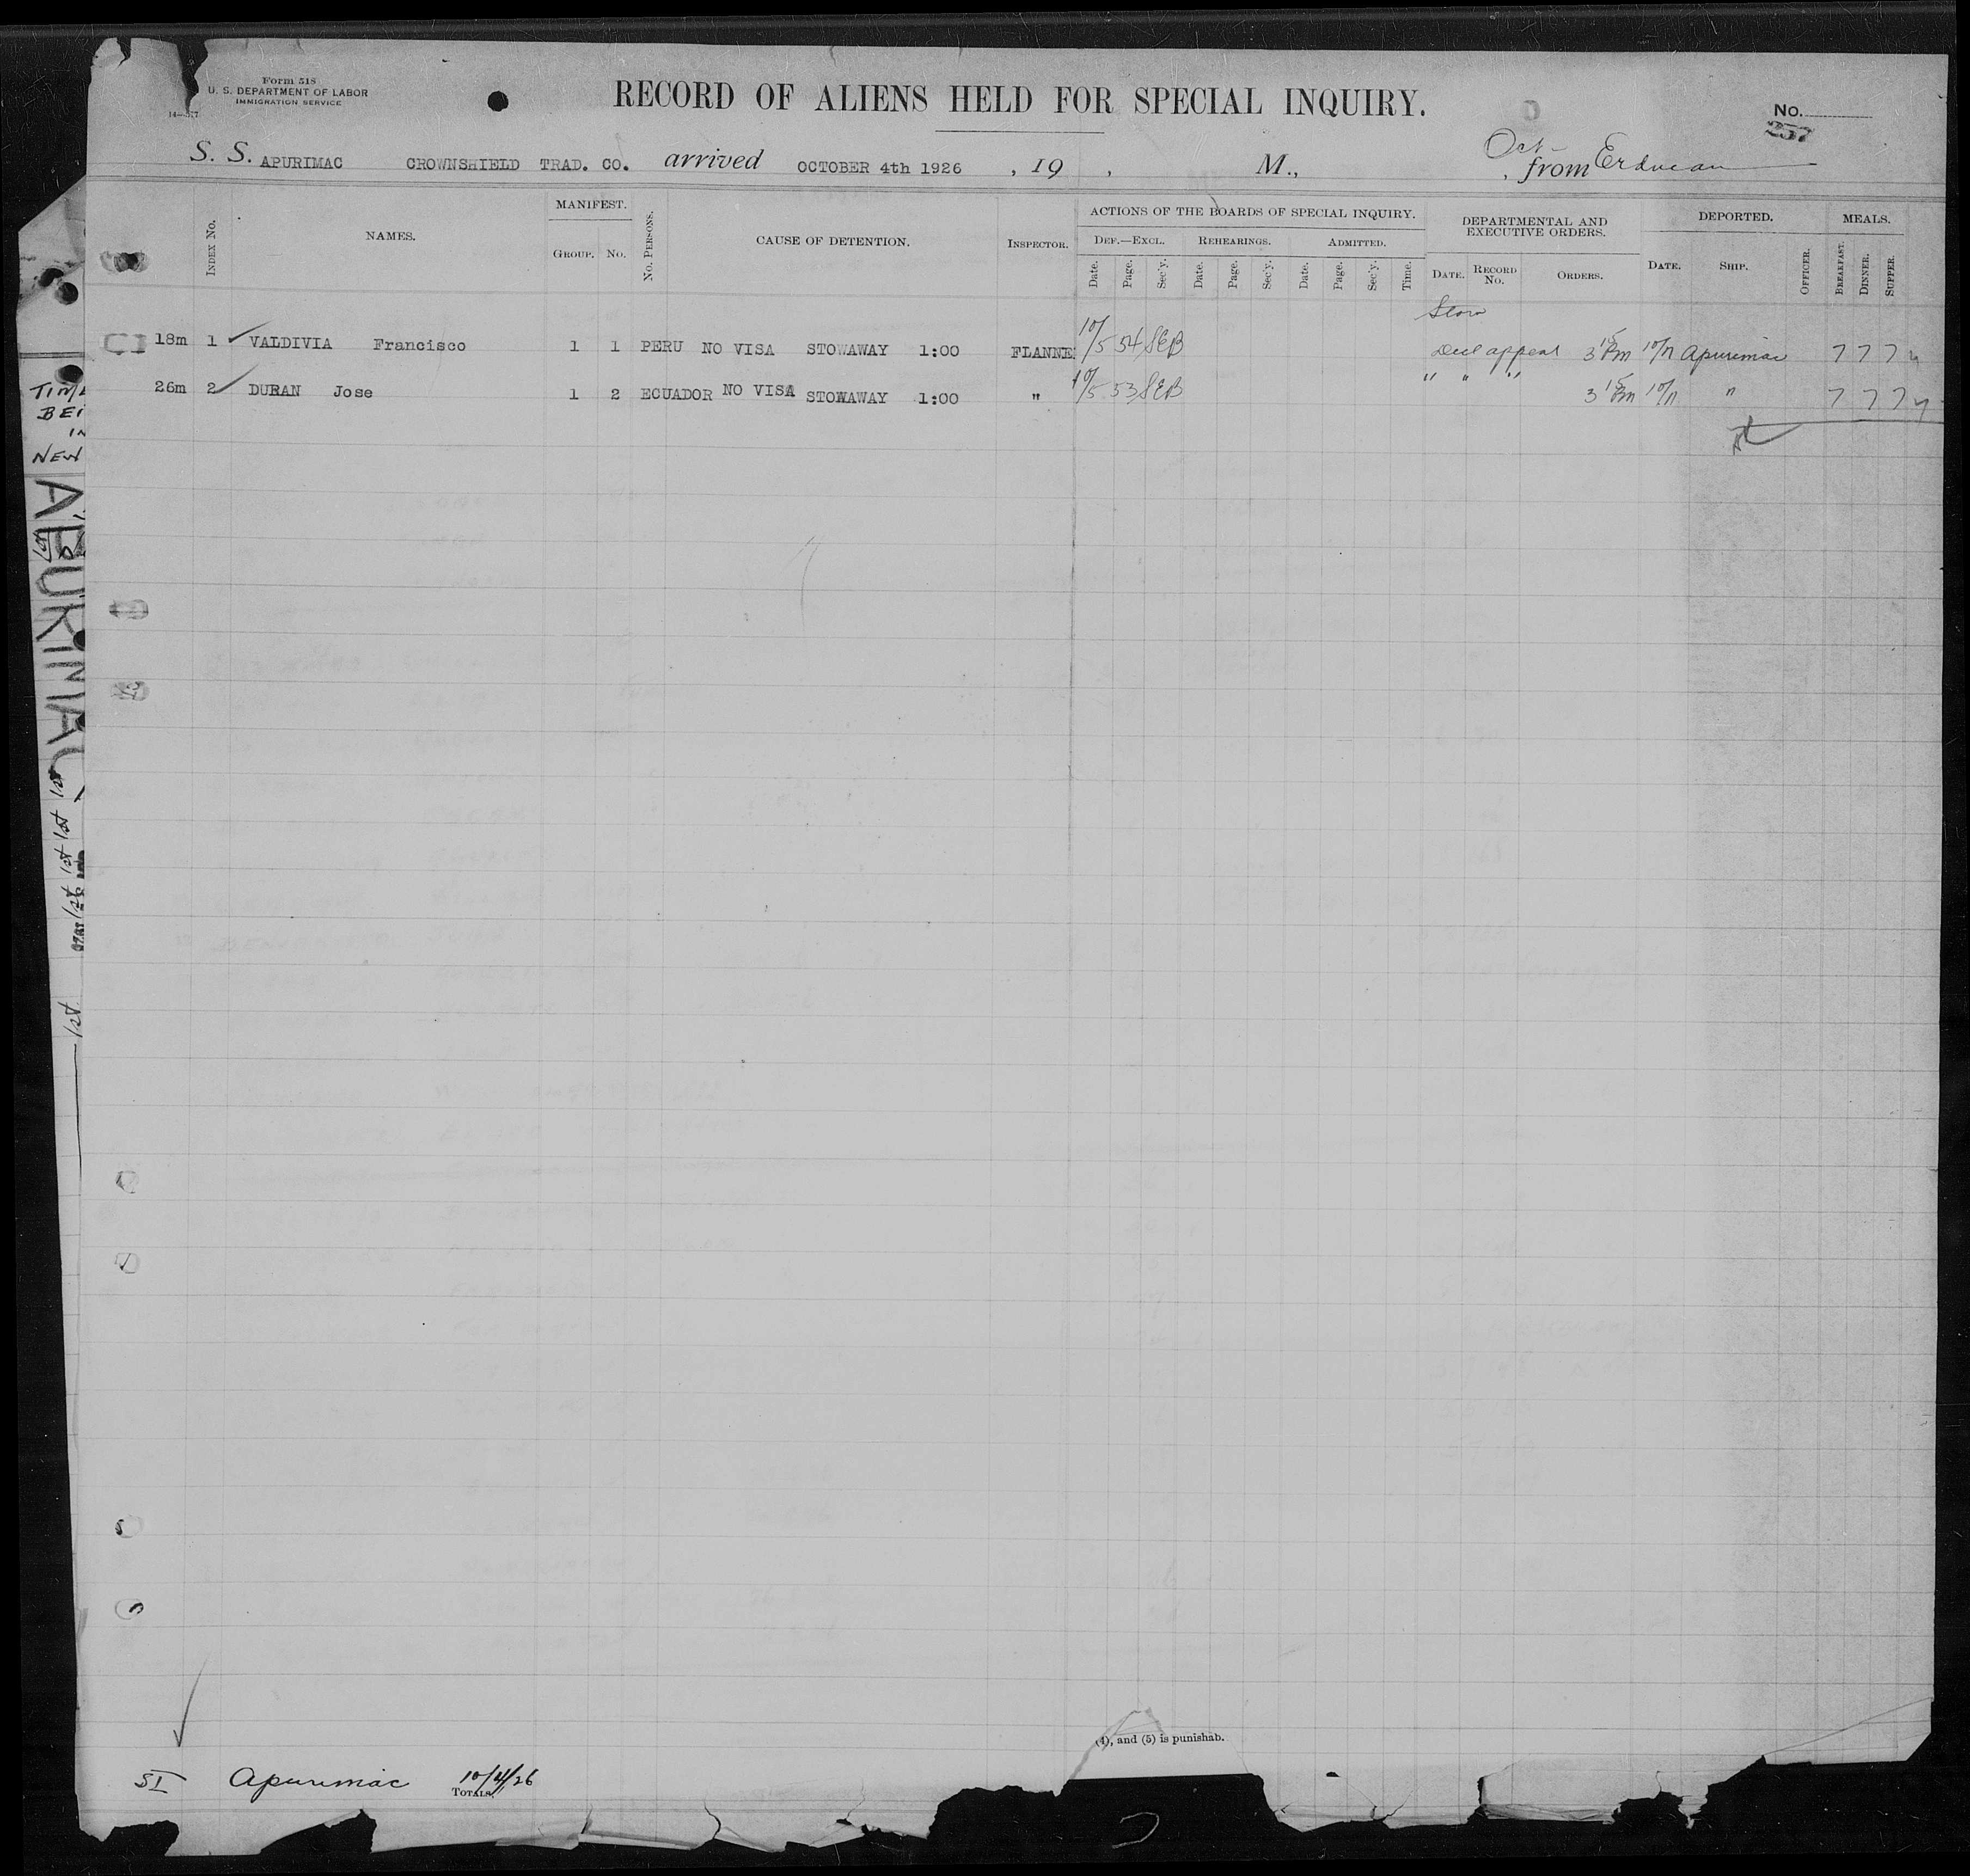 Form 518
U. S. DEPARTMENT OF LABOR
IMMIGRATION SERVICE
RECORD OF ALIENS HELD FOR SPECIAL INQUIRY.
No.
257
S. S. APURIMAC CROWNSHIELD TRAD. CO. arrived OCTOBER 4th 1926 , 19 , M., , from
Index No. NAMES. MANIFEST. Group. No. No. Persons. CAUSE OF DETENTION. Inspector. ACTIONS OF THE BOARDS OF SPECIAL INQUIRY. DEPARTMENTAL AND EXECUTIVE ORDERS. DEPORTED. MEALS.
Def.—Excl. Rehearings. Admitted.
Date. Page. Sec'y. Date. Page. Sec'y. Date. Page. Sec'y. Time. Date. Record No. Orders. Date. Ship. Officer. Breakfast. Dinner. Supper.
18m 1 VALDIVIA Francisco 1 1 PERU NO VISA STOWAWAY 1:00 FLANNE 10/5 54 SEB appeal 3 15 Pm Apurimac 7 7 7
26m 2 DURAN Jose 1 2 ECUADOR NO VISA STOWAWAY 1:00 " 10/5 53 SEB " " " 3 15 Pm " 7 7 7
BEI
IN
NEW
APURIMAC
(4), and (5) is punishab.
SI Apurimac 10/4/26
Totals,